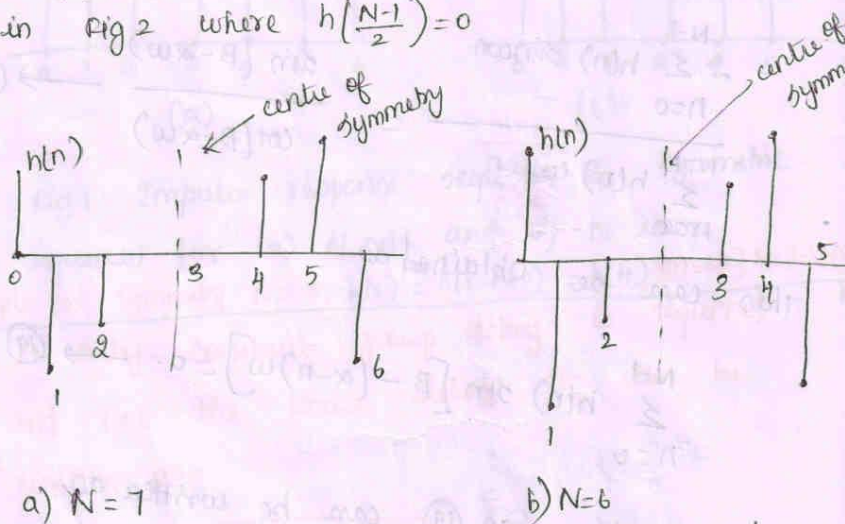 in Fig 2 where h(N-1/2) = 0
centre of
symmetry
h(n)
0 1 2 3 4 5 6
a) N = 7
centre of
symm
h(n)
1 2 3 4 5
b) N=6